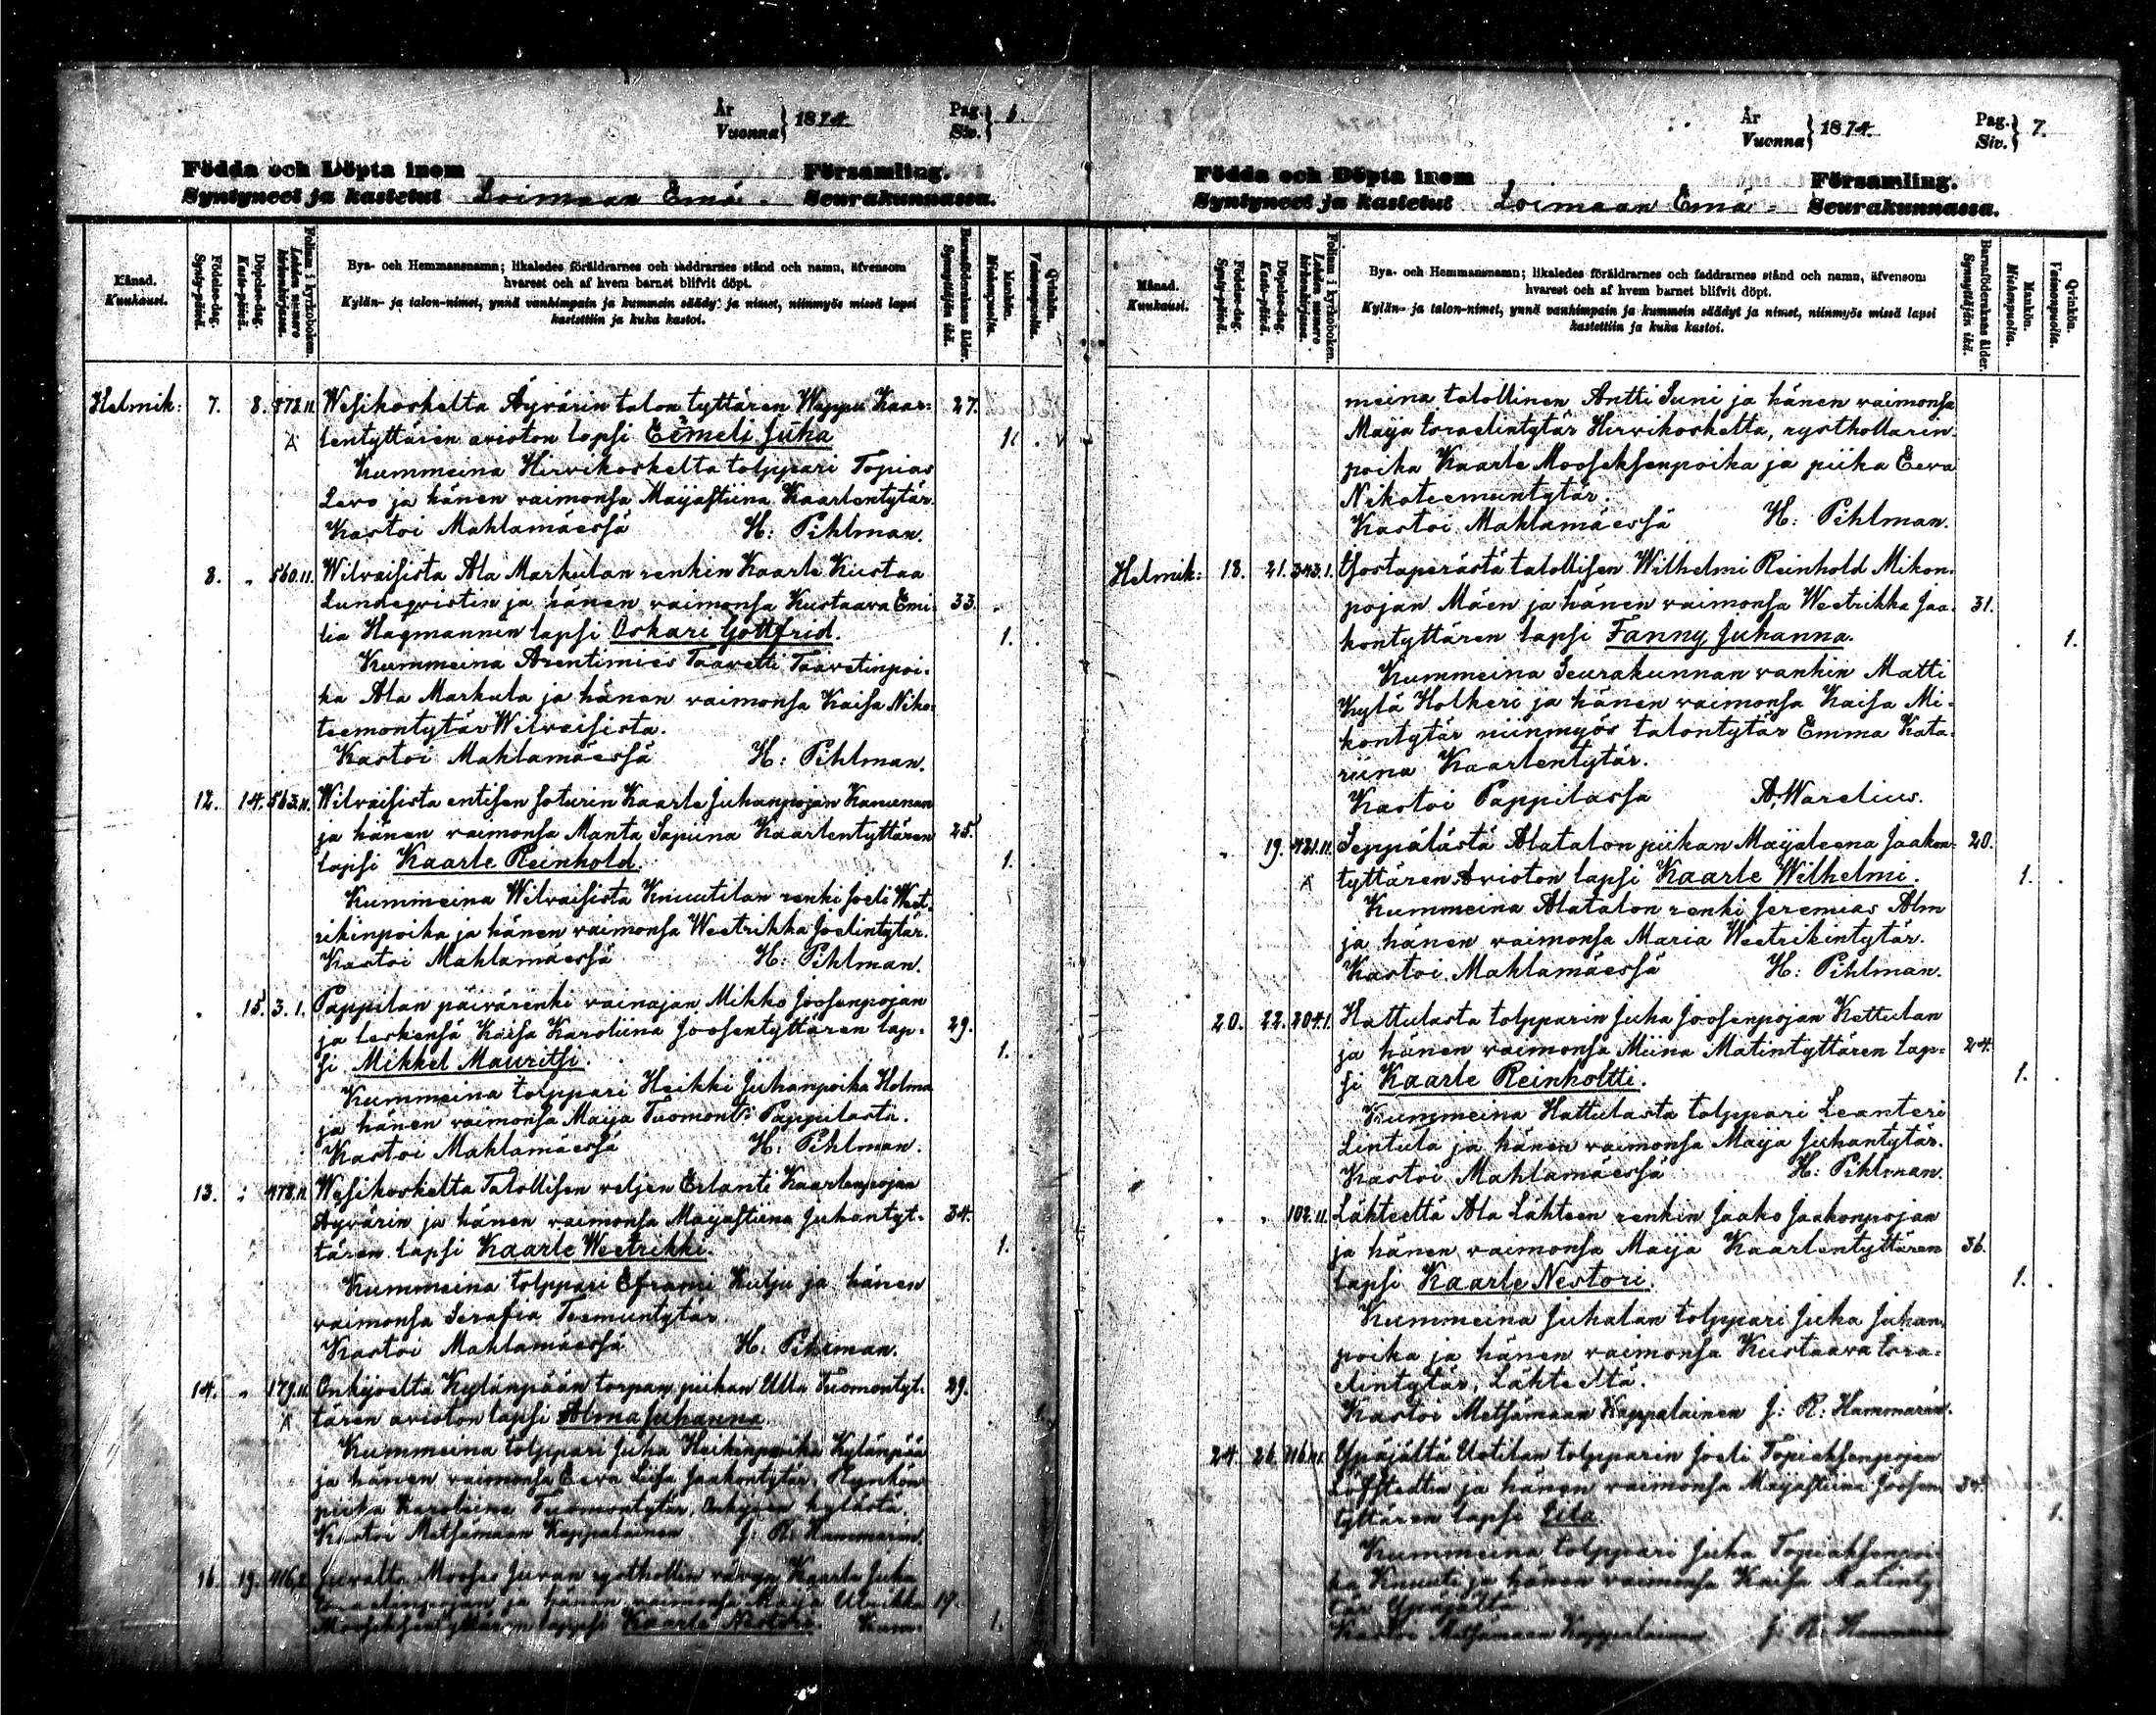 År
Vuonna } 1874.
Pag.
Siv. } 6.
Födda och Döpta inom Församling.
Syntyneet ja kastetut Loimaan Emä- Seurakunnassa.
Månad.
Kuukausi.
Födelse-dag.
Synty-päivä.
Döpelse-dag.
Kaste-päivä.
Folium i kyrkoboken.
Lehden numero kirkonkirjassa.
Bya- och Hemmansnamn; likaledes föräldrarnes och faddrarnes stånd och namn, äfvensom
hvarest och af hvem barnet blifvit döpt.
Kylän- ja talon-nimet, ynnä vanhimpain ja kummein säädyt ja nimet, niinmyös missä lapsi
kastettiin ja kuka kastoi.
Barnaföderskans ålder.
Synnyttäjän ikä.
Mankön.
Miehenpuolia.
Qvinkön.
Vaimonpuolia.
Helmik: 7. 8. 478.II. Wesikoskelta Äyvärin talon tyttären Wappu Kaar- 27.
lentyttären avioton lapsi Eemeli Juha 1.
Kummeina Hirvikoskelta tolppari Topias
Levo ja hänen vaimonsa Maijastiina Kaarlentytär.
Kastoi Mahlamäessä H: Pihlman.
8. „ 560.II. Wilvaisista Ala Markulan renkin Kaarle Kustaa
Lundeqvistin ja hänen vaimonsa Kustaava Emi- 33.
lia Hagmannin lapsi Oskari Gottfrid. 1.
Kummeina Arentimies Taavetti Taavetinpoi-
ka Ala Markula ja hänen vaimonsa Kaisa Niko-
teemontytär Wilvaisista.
Kastoi Mahlamäessä H: Pihlman.
12. 14. 563.II. Wilvaisista entisen soturin Kaarle Juhanpojan
ja hänen vaimonsa Manta Sapiina Kaarlentyttären 25.
lapsi Kaarle Reinhold. 1.
Kummeina Wilvaisista Knuutilan renki Joeli Weet-
rikinpoika ja hänen vaimonsa Weetrikka Joelintytär.
Kastoi Mahlamäessä H: Pihlman.
„ 15. 3. I. Pappilan päivärenki vainajan Mikko Joosenpojan
ja leskensä Kaisa Karoliina Joosentyttären lap- 29.
si Mikkel Mauritsi. 1.
Kummeina tolppari Heikki Juhanpoika Holma
ja hänen vaimonsa Maija Tuomont: Pappilasta.
Kastoi Mahlamäessä H: Pihlman.
13. „ 478.II. Wesikoskelta Talollisen veljen Erlanti Kaarlenpojan
Äyvärin ja hänen vaimonsa Maijastiina Juhantyt- 34.
tären lapsi Kaarle Weetrikki. 1.
Kummeina tolppari Eframi Kulju ja hänen
vaimonsa Serafia Teemuntytär.
Kastoi Mahlamäessä H: Pihlman.
14. „ 179.II. Onkijoelta Kylänpään torpan piikan Ulla Tuomontyt- 29.
tären avioton lapsi Alma Juhanna. 1.
Kummeina tolppari Juha Heikinpoika Kylänpää
ja hänen vaimonsa Eeva Liisa Jaakontytär,
piika Karoliina Tuomontytär, Onkijoen kylästä.
Kastoi Metsämaan Kappalainen J: R: Hammarén.
16. 19. 416. Juvalta Mooses Juvan rysthollin vävyn Kaarle Juha
ja hänen vaimonsa Maija Ulrikka 19.
Mooseksentyttären lapsi Kaarle Nestori. Kum- 1.
År
Vuonna } 1874.
Pag.
Siv. } 7.
Födda och Döpta inom Församling.
Syntyneet ja kastetut Loimaan Emä- Seurakunnassa.
Månad.
Kuukausi.
Födelse-dag.
Synty-päivä.
Döpelse-dag.
Kaste-päivä.
Folium i kyrkoboken.
Lehden numero kirkonkirjassa.
Bya- och Hemmansnamn; likaledes föräldrarnes och faddrarnes stånd och namn, äfvensom
hvarest och af hvem barnet blifvit döpt.
Kylän- ja talon-nimet, ynnä vanhimpain ja kummein säädyt ja nimet, niinmyös missä lapsi
kastettiin ja kuka kastoi.
Barnaföderskans ålder.
Synnyttäjän ikä.
Mankön.
Miehenpuolia.
Qvinkön.
Vaimonpuolia.
meina talollinen Antti Suni ja hänen vaimonsa
Maija Israelintytär Hirvikoskelta, rysthollarin
poika Kaarle Mooseksenpoika ja piika Eeva
Nikoteemuntytär.
Kastoi Mahlamäessä H: Pihlman.
Helmik: 18. 21. 343.I. talollisen Wilhelmi Reinhold Mikon-
pojan Mäen ja hänen vaimonsa Weetrikka Jaa- 31.
kontyttären lapsi Fanny Juhanna. 1.
Kummeina Seurakunnan vankin Matti
Kylä Holkeri ja hänen vaimonsa Kaisa Mi-
kontytär niinmyös talontytär Emma Kata-
riina Kaarlentytär.
Kastoi Pappilassa A. Warelius.
„ 19. 421.II. Seppälästä Alatalon piikan Maijaleena Jaakon- 20.
tyttären Avioton lapsi Kaarle Wilhelmi. 1.
Kummeina Alatalon renki Jeremias Alm
ja hänen vaimonsa Maria Weetrikintytär.
Kastoi Mahlamäessä H: Pihlman.
20. 22. 204.I. Hattulasta tolpparin Juha Joosenpojan Kettulan
ja hänen vaimonsa Miina Matintyttären lap- 24.
si Kaarle Reinholtti. 1.
Kummeina Hattulasta tolppari Leanteri
Lintula ja hänen vaimonsa Maija Juhantytär.
Kastoi Mahlamäessä H: Pihlman.
„ „ 102.II. Lähteeltä Ala Lähteen renkin Jaako Jaakonpojan
ja hänen vaimonsa Maija Kaarlentyttären 36.
lapsi Kaarle Nestori. 1.
Kummeina Juhalan tolppari Juha Juhan-
poika ja hänen vaimonsa Kustaava Isra-
elintytär, Lähteeltä.
Kastoi Metsämaan Kappalainen J: R: Hammarén.
24. 26. Ypäjältä Uotilan tolpparin Joeli Topiaksenpojan
Löfstedtin ja hänen vaimonsa Maijastiina Joosen- 34.
tyttären lapsi Eila. 1.
Kummeina tolppari Juha Topiaksenpoi-
ka Knuuti ja hänen vaimonsa Kaisa Matinty-
tär Ypäjältä
Kastoi Metsämaan Kappalainen J: R: Hammarén